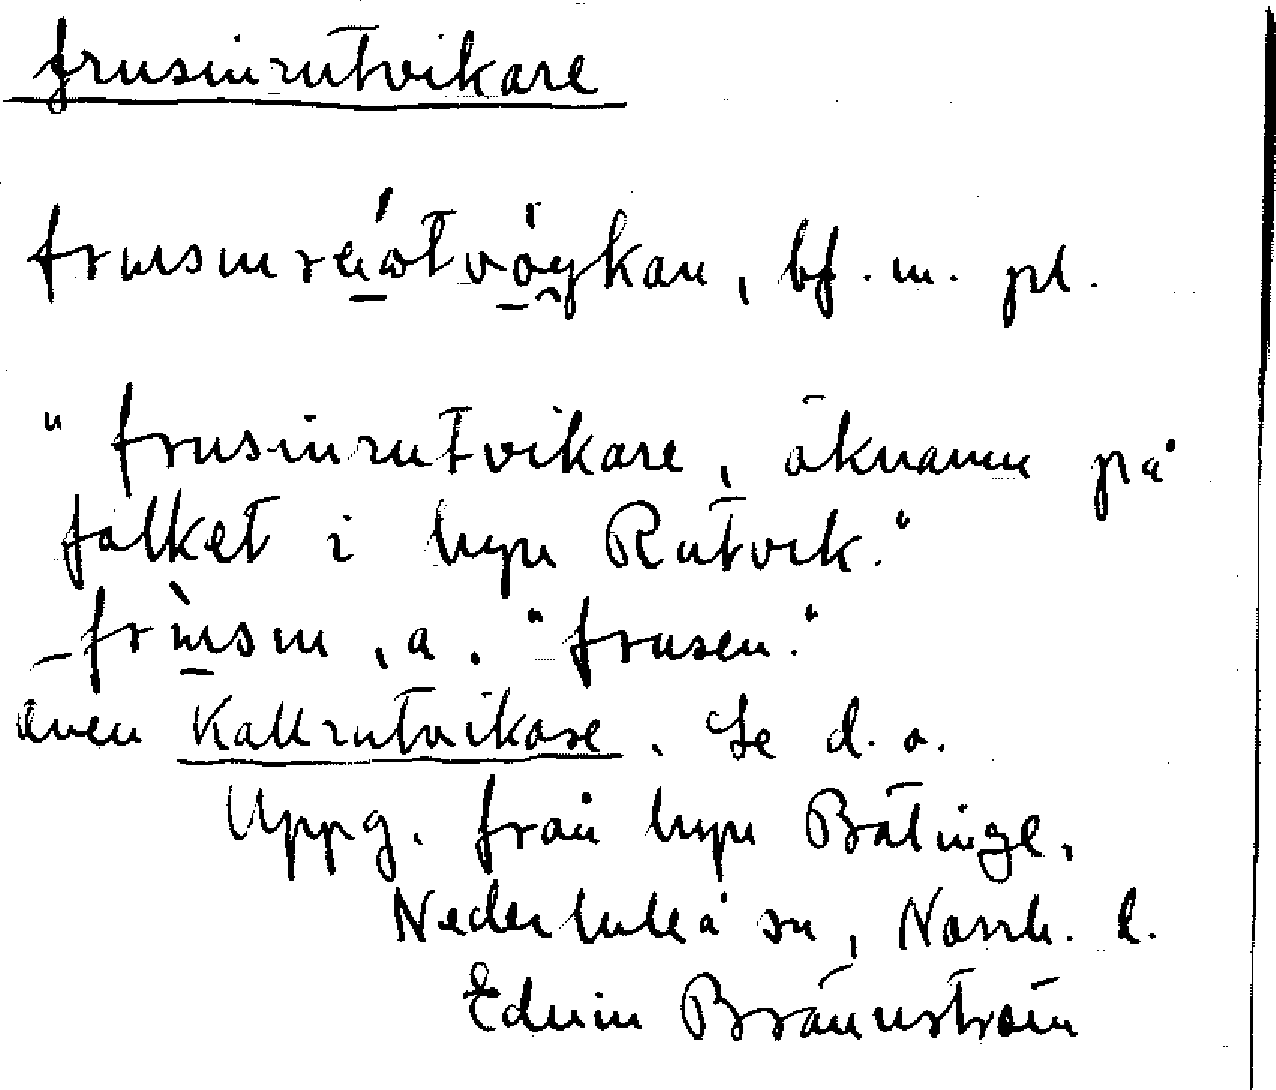 frusinrutvikare
bf. m. pl.
"frusinrutvikare, öknamn på
folket i byn Rutvik."
frusin, a. "frusen."
även Kallrutvikare. Se d. o.
Uppg. från byn Bätinge,
Nederluleå sn, Norrb. l.
Edvin Brännström